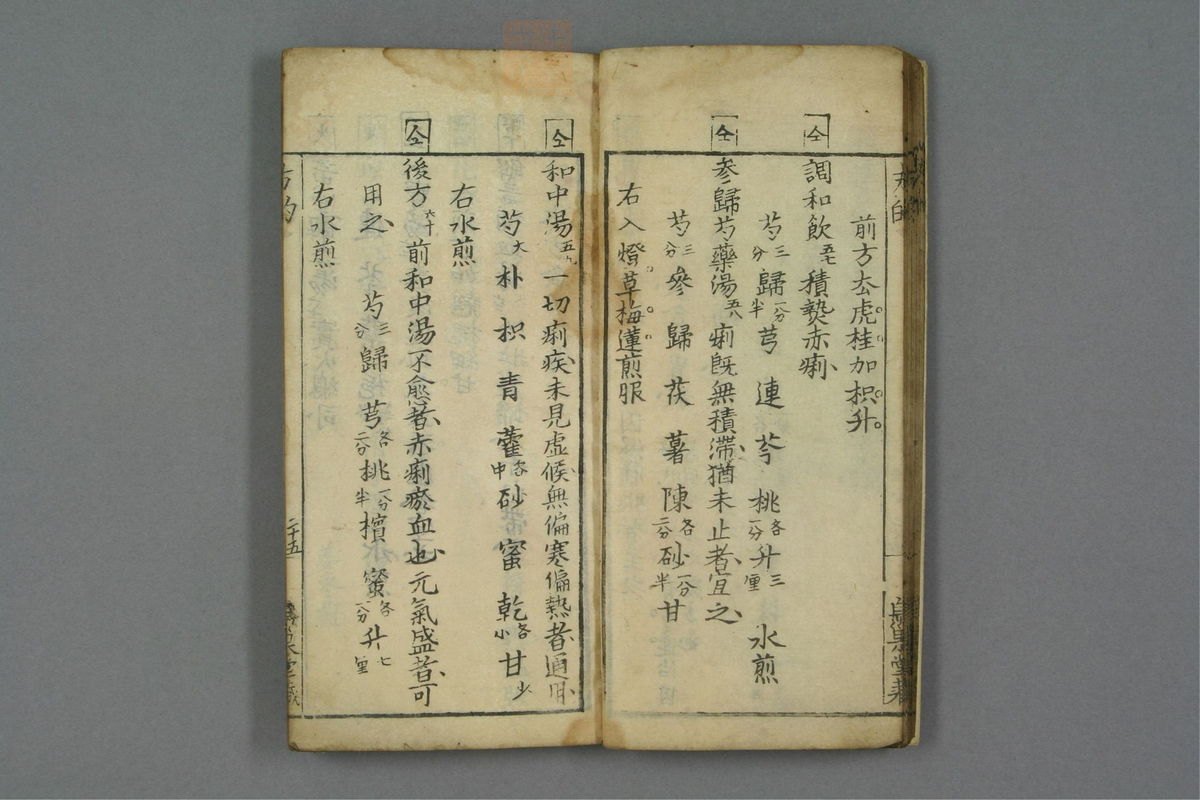 前方去虎桂加枳升
仝
調和飲五七積熱赤痢
芍三分歸一分半芎連芩桃各一分升三厘水煎
仝
参歸芍藥湯五八痢既無積滞猶未止者宜之
芍三分參歸茯薯陳各二分砂一分半甘
右入燈草梅蓮煎服
仝
和中湯五九一切痢疾未見虚候無偏寒偏熱者通用
芍大朴枳青藿各中砂蜜乾各小甘少
右水煎
仝
後方六十前和中湯不愈者赤痢瘀血也元氣盛者可
用之
芍三分歸芎各二分桃一分半檳蜜各一分升七厘
右水煎
二十五